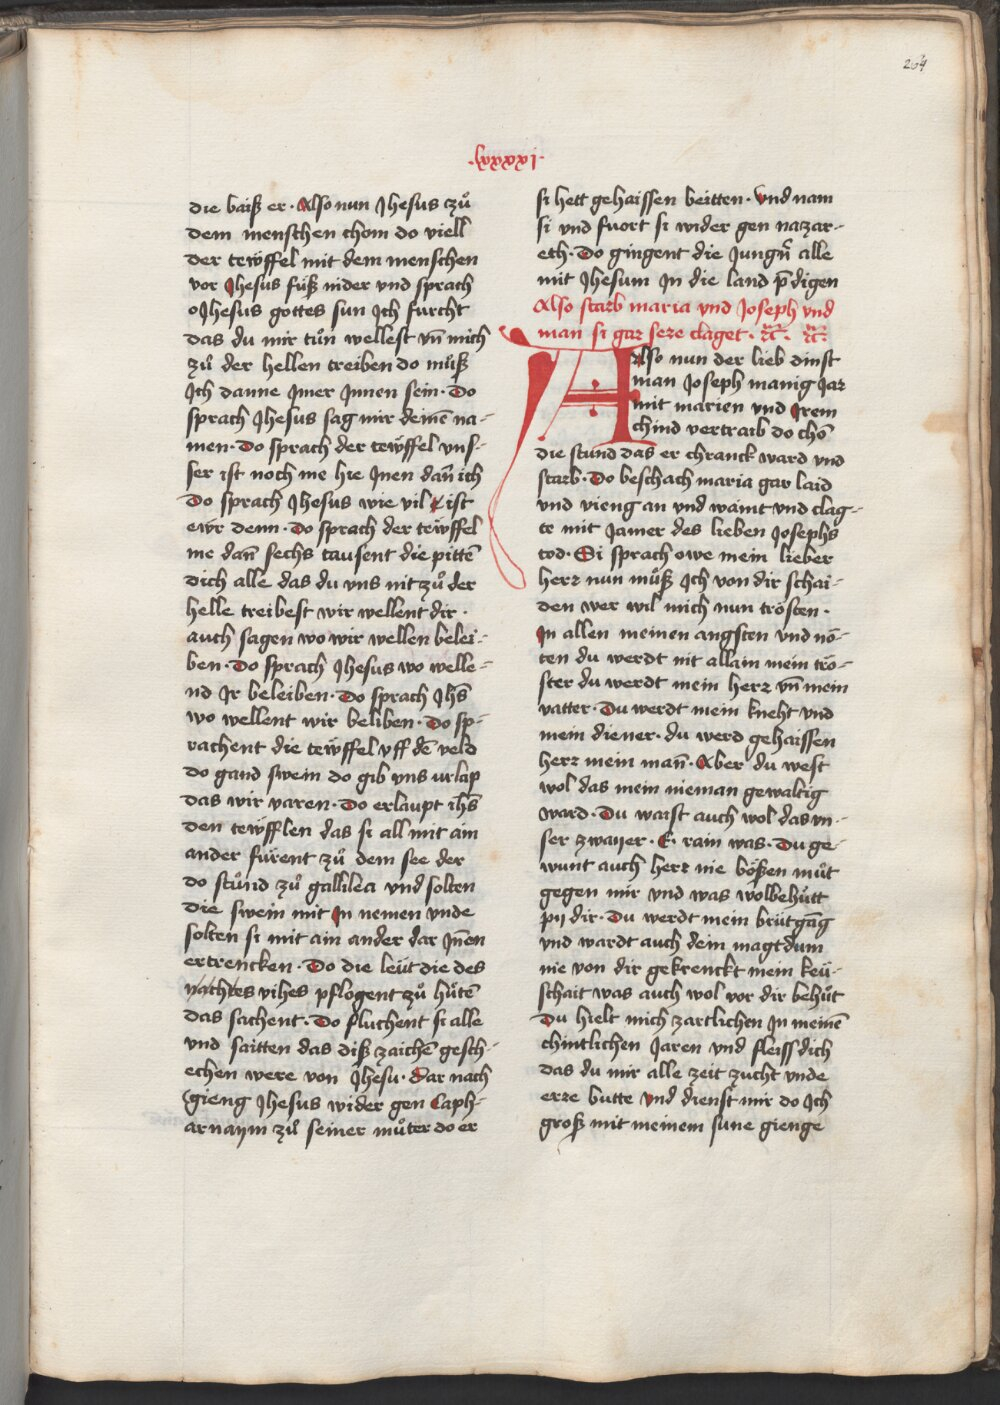 204
·lxxxxi·
die baiß er · Also nun Jhesus zuͦ
dem menschen chom do viell
der tewͤffel mit dem menschen
vor Jhesus fuͤß nider und sprach
o Jhesus gottes sun Ich furcht
das du mir tuͦn wellest vn̄ mich
zuͦ der hellen treiben do muͦß
Ich danne Jmer Jnnen sein · Do
sprach Jhesus sag mir deinē na-
men · Do sprach der tewͤffel vns-
ser ist noch me hie Jnen dan̄ ich
Do sprach Jhesus wie vil ist
ewr denn · Do sprach der tewͤffel
me dan̄ sechs tausent die pittē
dich alle das du vns nit zuͦ der
helle treibest wir wellent dir ·
auch sagen wo wir wellen belei-
ben · Do sprach Jhesus wo welle-
nd Jr beleiben · Do sprach Jhs̄
wo wellent wir beliben · Do sp-
rachent die tewͤffel vff dē veld
do gand swein do gib vns vrlap
das wir varen · Do erlaupt ihs̄
den tewͤfflen das si all mit ain
ander fuͤrent zuͦ dem see der
do stuͦnd zuͦ gallilea vnd solten
die swein mit In nemen vnde
solten si mit ain ander dar Jn̄en
ertrencken · Do die leuͤt die des
vihes pflogent zuͦ huͤtē
das sachent · Do fluchent si alle
vnd saitten das diß zaichē gesch-
echen were von Jhesu · Dar nach
gieng Jhesus wider gen Caph-
arnaym zuͦ seiner muͦter do er
si hett gehaissen beitten · Vnd nam
si vnd fuort si wider gen nazar-
eth · Do gingent die Jungr̄ alle
mit Jhesum In die land p̄digen
Also starb maria vnd Joseph vnd
man si gar sere claget · ꝛc̄ · ꝛc̄ ·
Also nun der lieb dinst
man Joseph manig Jar
mit marien vnd Irem
chind vertraib do chō
die stund das er chranck ward vnd
starb · Do beschach maria gar laid
vnd vieng an vnd waint vnd clag-
te mit Jamer des lieben Josephs
tod · Si sprach owe mein lieber
herr nun muͦß Ich von dir schai-
den wer wil mich nun troͤsten ·
In allen meinen angsten vnd noͤ-
ten du werdt nit allain mein troͤ-
ster du werdt mein herr vn̄ mein
vatter · Du werdt mein kneht vnd
mein diener · du werd gehaissen
herr mein man̄ · Aber du west
wol das mein nieman gewaltig
ward · Du waist auch wol das vn-
ser zwaiier · E · rain was · Du ge-
wunt auch herr nie boͤßen muͦt
gegen mir vnd was wolbehuͤtt
pij dir · Du werdt mein bruͤtgāg
vnd wardt auch dein magtdum
nie von dir gekrenckt mein keuͤ-
schait was auch wol vor dir behuͤt
Du hielt mich zartlichen In meinē
chintlichen Jaren vnd fleiss dich
das du mir alle zeit zucht vnde
erre butte vnd dienst mir do Ich
groß mit meinem sune gienge